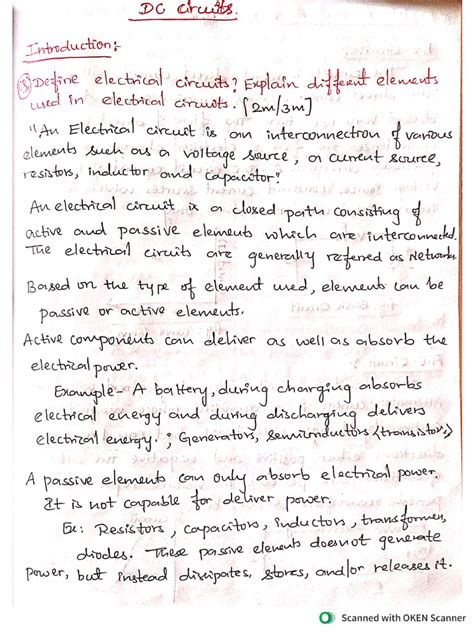 DC Circuits.
Introduction:-
Define electrical circuits? Explain different elements
used in electrical circuits. [2m/3m]
"An Electrical circuit is an interconnection of various
elements such as a voltage source, a current source,
resistors, inductor and capacitor"
An electrical circuit is a closed path consisting of
active and passive elements which are interconnected.
The electrical circuits are generally referred as Network.
Based on the type of element used, elements can be
passive or active elements.
Active components can deliver as well as absorb the
electrical power.
Example - A battery, during charging absorbs
electrical energy and during discharging delivers
electrical energy. ; Generators, semiconductors (transistors)
A passive elements can only absorb electrical power.
It is not capable for deliver power.
Ex: Resistors, capacitors, inductors, transformer,
diodes. These passive element doesnot generate
power, but instead dissipates, stores, and/or releases it.
Scanned with OKEN Scanner